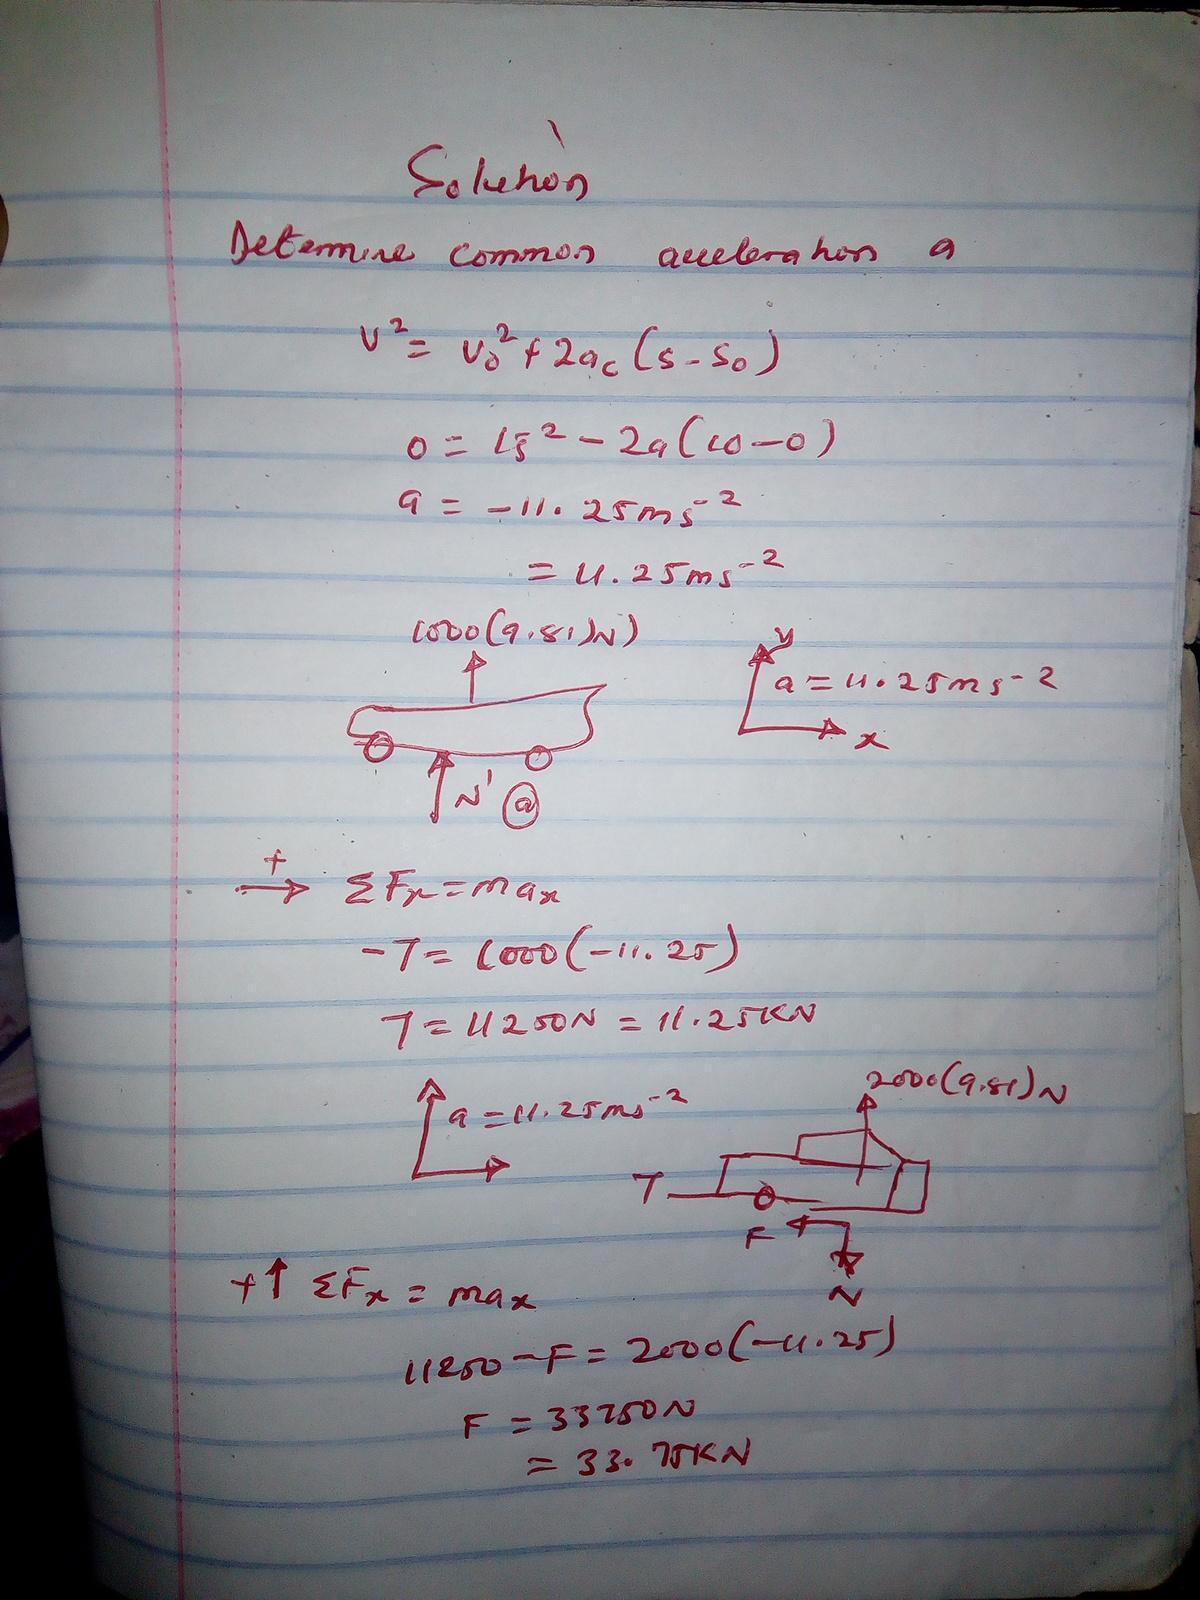 Solution
Determine common acceleration a
v² = v₀² + 2a꜀ (s - s₀)
0 = 15² - 2a(10-0)
a = -11.25ms⁻²
= 11.25ms⁻²
1000(9.81)N)
y
a = 11.25ms⁻²
x
N' a
+ → ΣFx = max
-T = 1000(-11.25)
T = 11250N = 11.25KN
2000(9.81)N
a = 11.25ms⁻²
T
F
N
+↑ ΣFx = max
11250 - F = 2000(-11.25)
F = 33750N
= 33.75KN